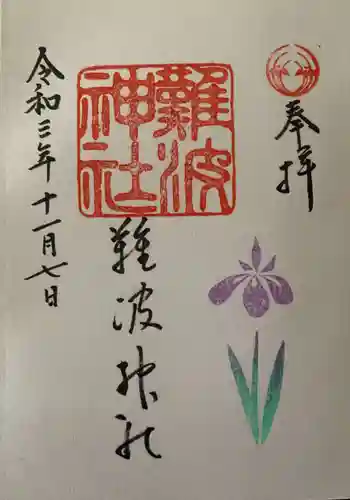 奉拝
難波神社
難波神社
令和三年十一月七日